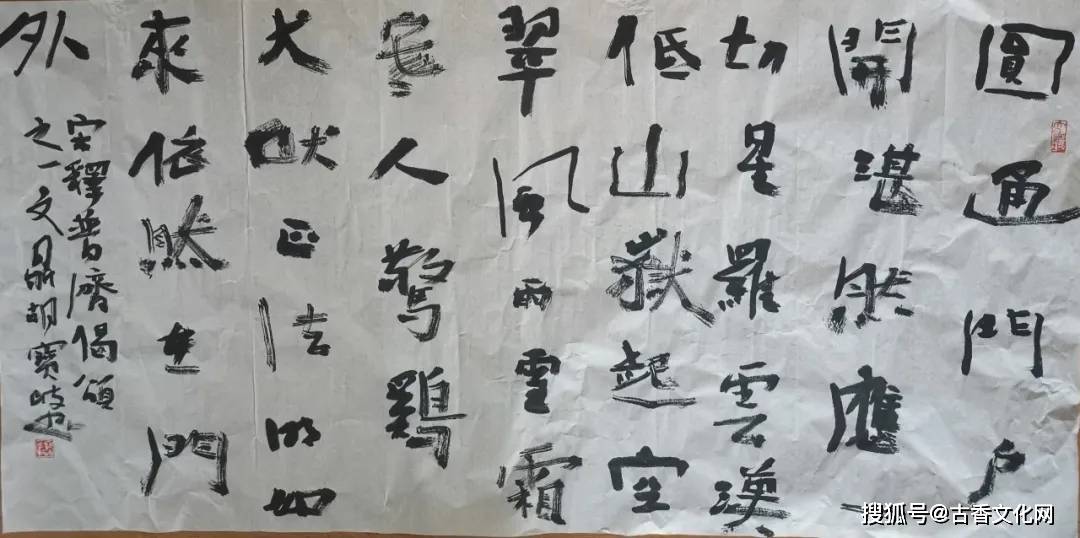 圓通門戶
開湛然應一
切星羅雲漢
低山嶽起空
翠風雨雪霜
人驚鷄
犬吠正法明如
來依然在門
外
宋釋普濟偈頌
之一文晶胡寶岐
搜狐号@古香文化网